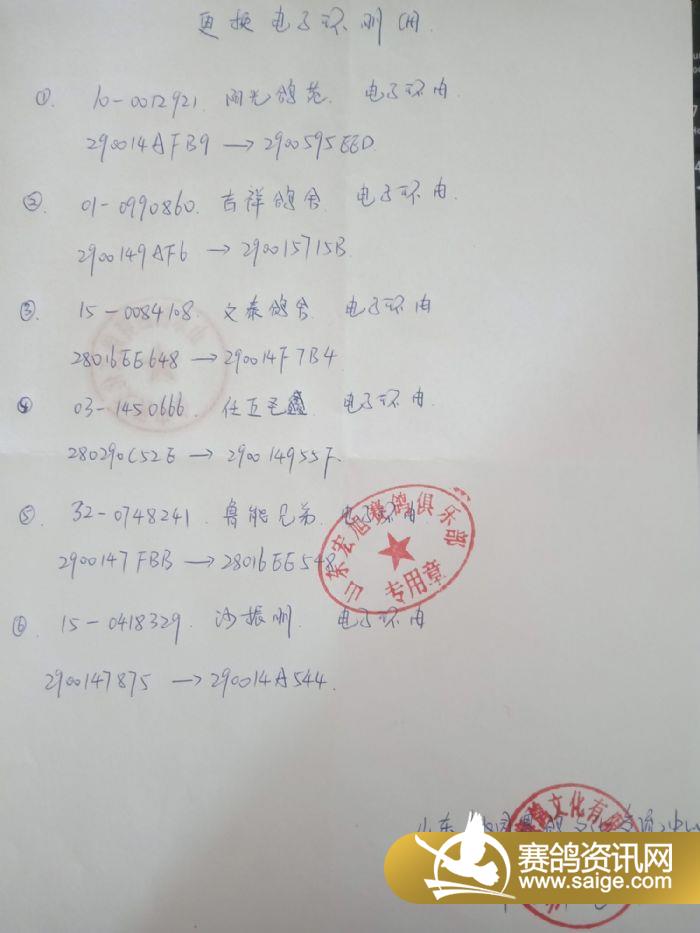 更换电子环
① 10-0012921. 阳光鸽苑. 电子环由.
290014AFB9 → 2900595EED.
② 01-0990860. 吉祥鸽舍. 电子环由.
2900149AF6 → 290015715B.
③ 15-0084108. 文泰鸽舍. 电子环由
28016EE648 → 290014F7B4
④ 03-1450666. 任五毛鑫. 电子环由.
280290C52E → 290014955F.
⑤ 32-0748241. 鲁能兄弟. 电子环由.
2900147FBB → 28016EE548
山东宏旭赛鸽俱乐部
专用章
⑥ 15-0418329. 沙振洲. 电子环由
2900147875 → 290014A544.
山东
文化有
赛鸽资讯网
www.saige.com